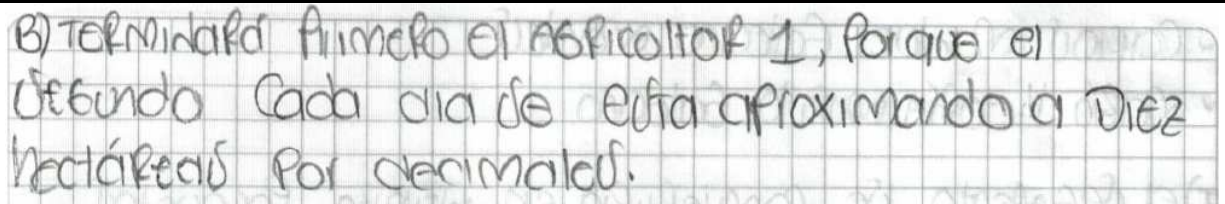 B) TERMINARá PrimERO El AGRicoltoR 1, Por que el
segundo Cada dia se esta aproximando a Diez
hectáreas Por decimales.